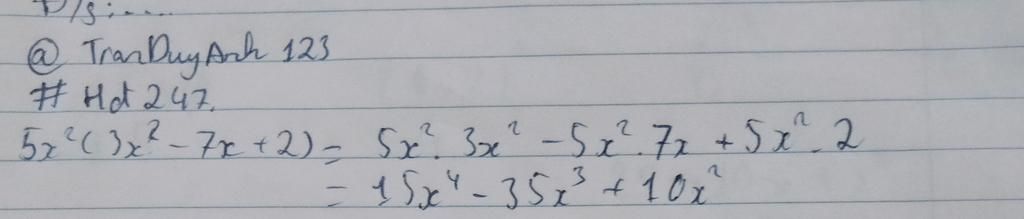 Đ/s:.....
@ TranDuyAnh 123
# Hdt 247.
5x²(3x² - 7x + 2) = 5x². 3x² - 5x². 7x + 5x². 2
= 15x⁴ - 35x³ + 10x²